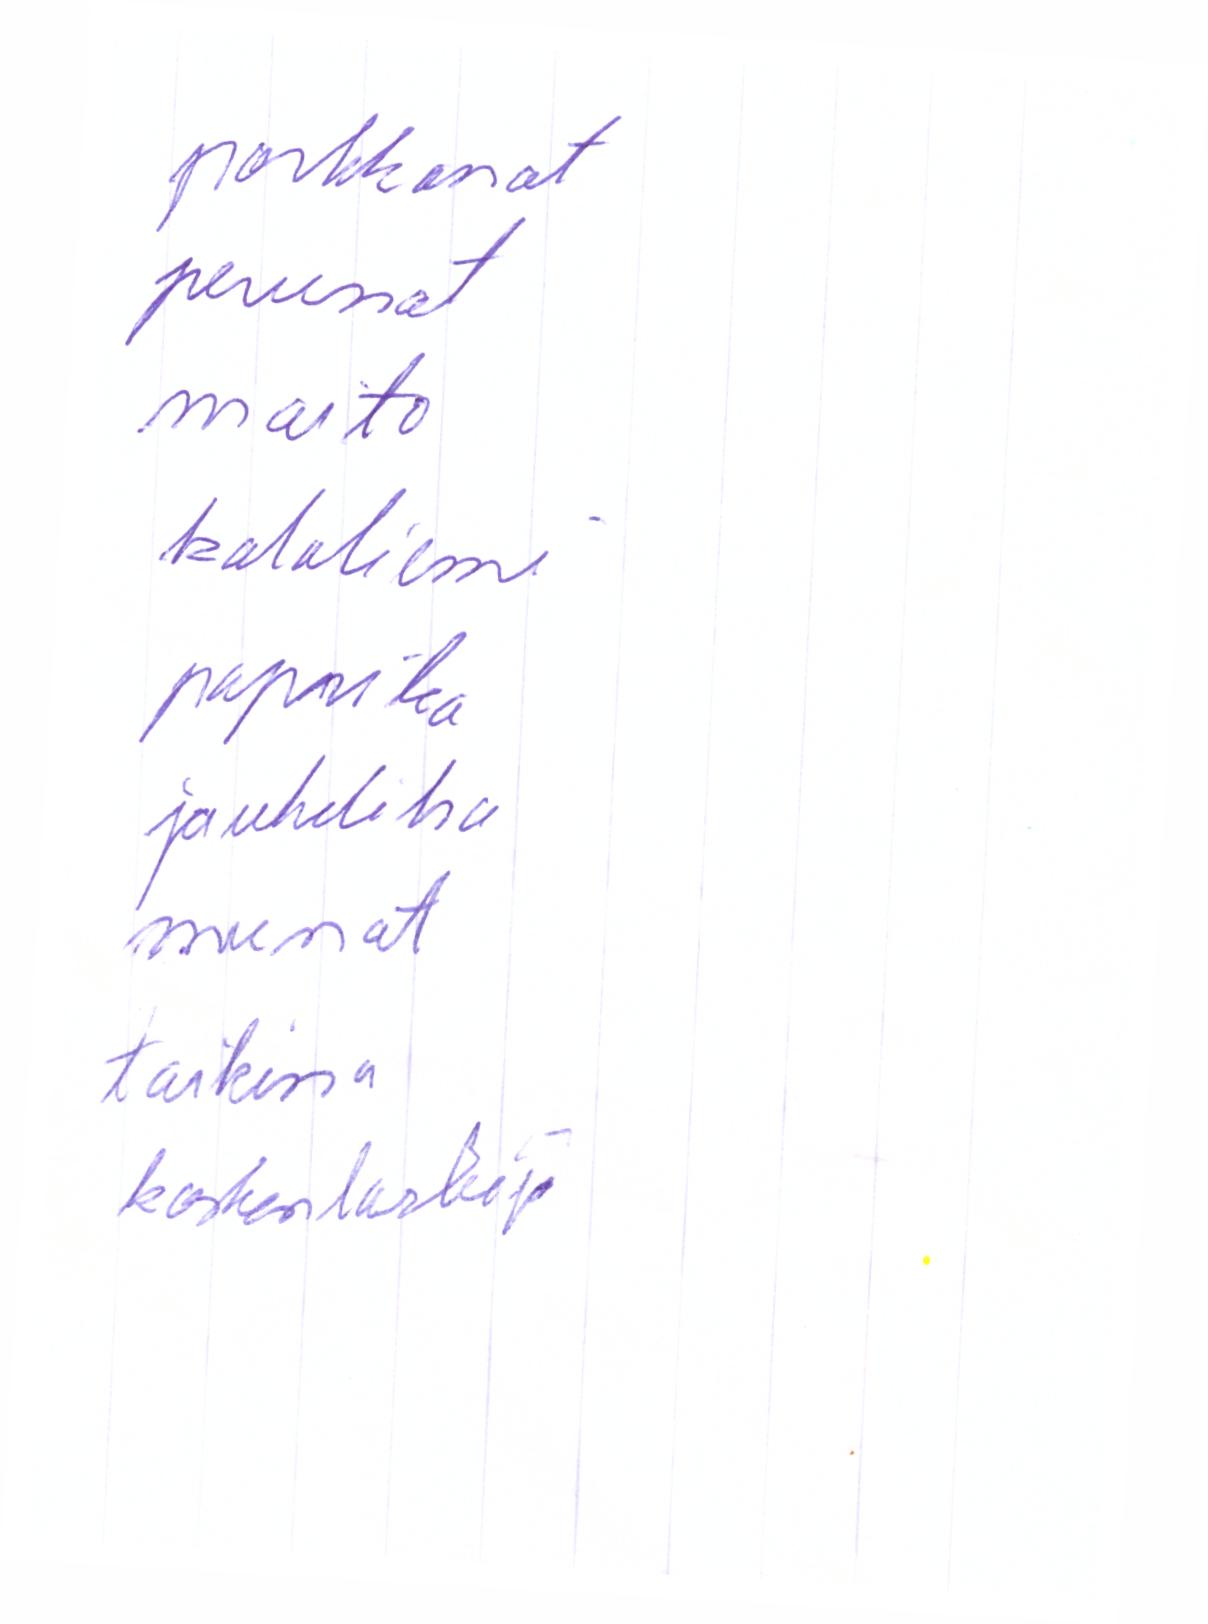 porkkanat
perunat
maito
kalaliemi
paprika
jauheliha
munat
taikina
koskenlaskija